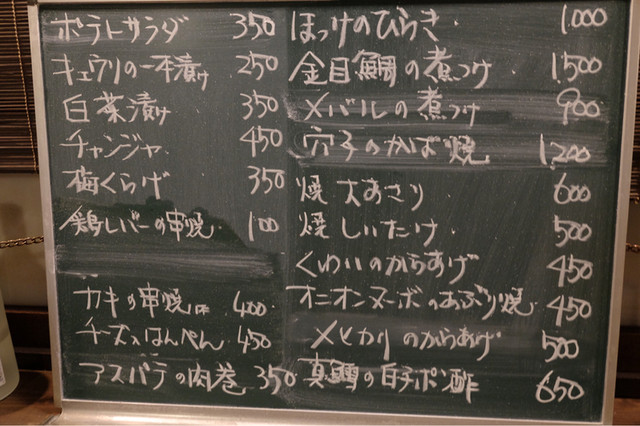 ポテトサラダ 350
キュウリの一本漬け 250
白菜漬け 350
チャンジャ 450
梅くらげ 350
鶏レバーの串焼 100
カキの串焼 400
チーズはんぺん 450
アスパラの肉巻 350
ほっけのひらき 1,000
金目鯛の煮つけ 1,500
メバルの煮つけ 900
穴子のかば焼 1,200
焼大あさり 600
焼しいたけ 500
くわいのからあげ 450
オニオンヌーボのあぶり焼 450
メヒカリのからあげ 500
真鱈の白子ポン酢 650